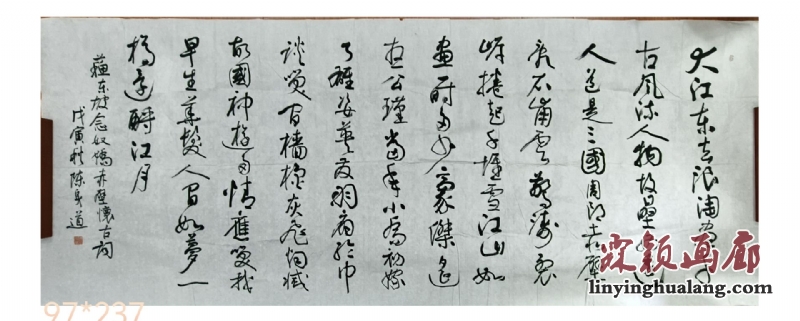 大江东去浪淘尽千
古风流人物故垒西边
人道是三國周郎赤壁
乱石崩雲惊涛裂
岸捲起千堆雪江山如
画一时多少豪傑遥
想公瑾当年小乔初嫁
了雄姿英发羽扇纶巾
谈笑间樯橹灰飞烟滅
故國神遊多情應笑我
早生华髮人间如夢一
樽还酹江月
蘓东坡念奴嬌赤壁懷古词
戊寅秋陈道
霖颖画廊
www.linyinghualang.com
97*237